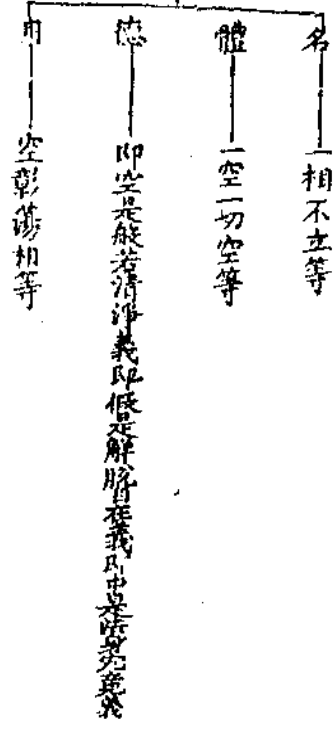 名 一相不立等
體 一空一切空等
德 即空是般若清淨義即假是解脫自在義即中是法身究竟義
用 空彰蕩相等